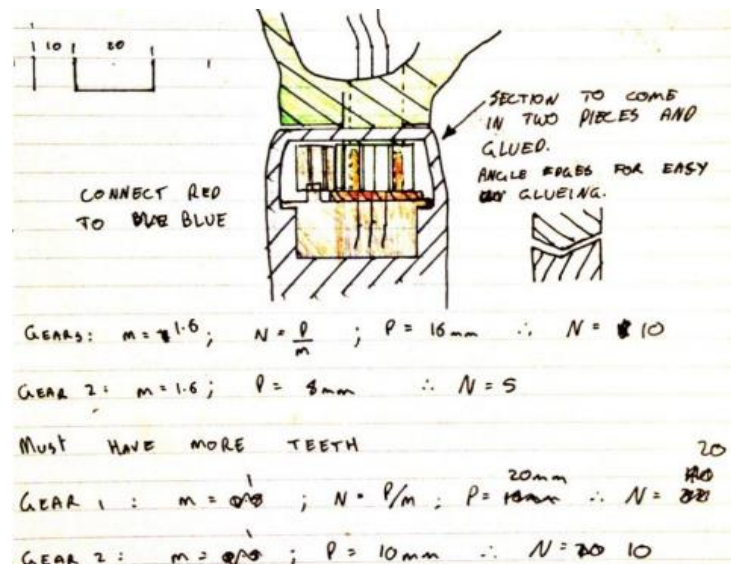 10 20
SECTION TO COME
IN TWO PIECES AND
GLUED.
ANGLE EDGES FOR EASY
GLUEING.
CONNECT RED
TO BLUE
GEARS: m = 1.6; N = P/m ; P = 16mm ∴ N = 10
GEAR 2: m = 1.6; P = 8mm ∴ N = 5
MUST HAVE MORE TEETH
GEAR 1 : m = 1 ; N = P/m ; P = 20mm ∴ N = 20
GEAR 2: m = 1 ; P = 10mm ∴ N = 10